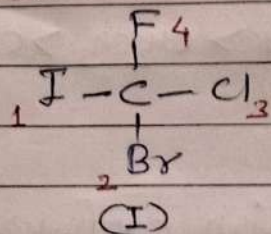 F 4
1 I - C - Cl 3
2 Br
(I)